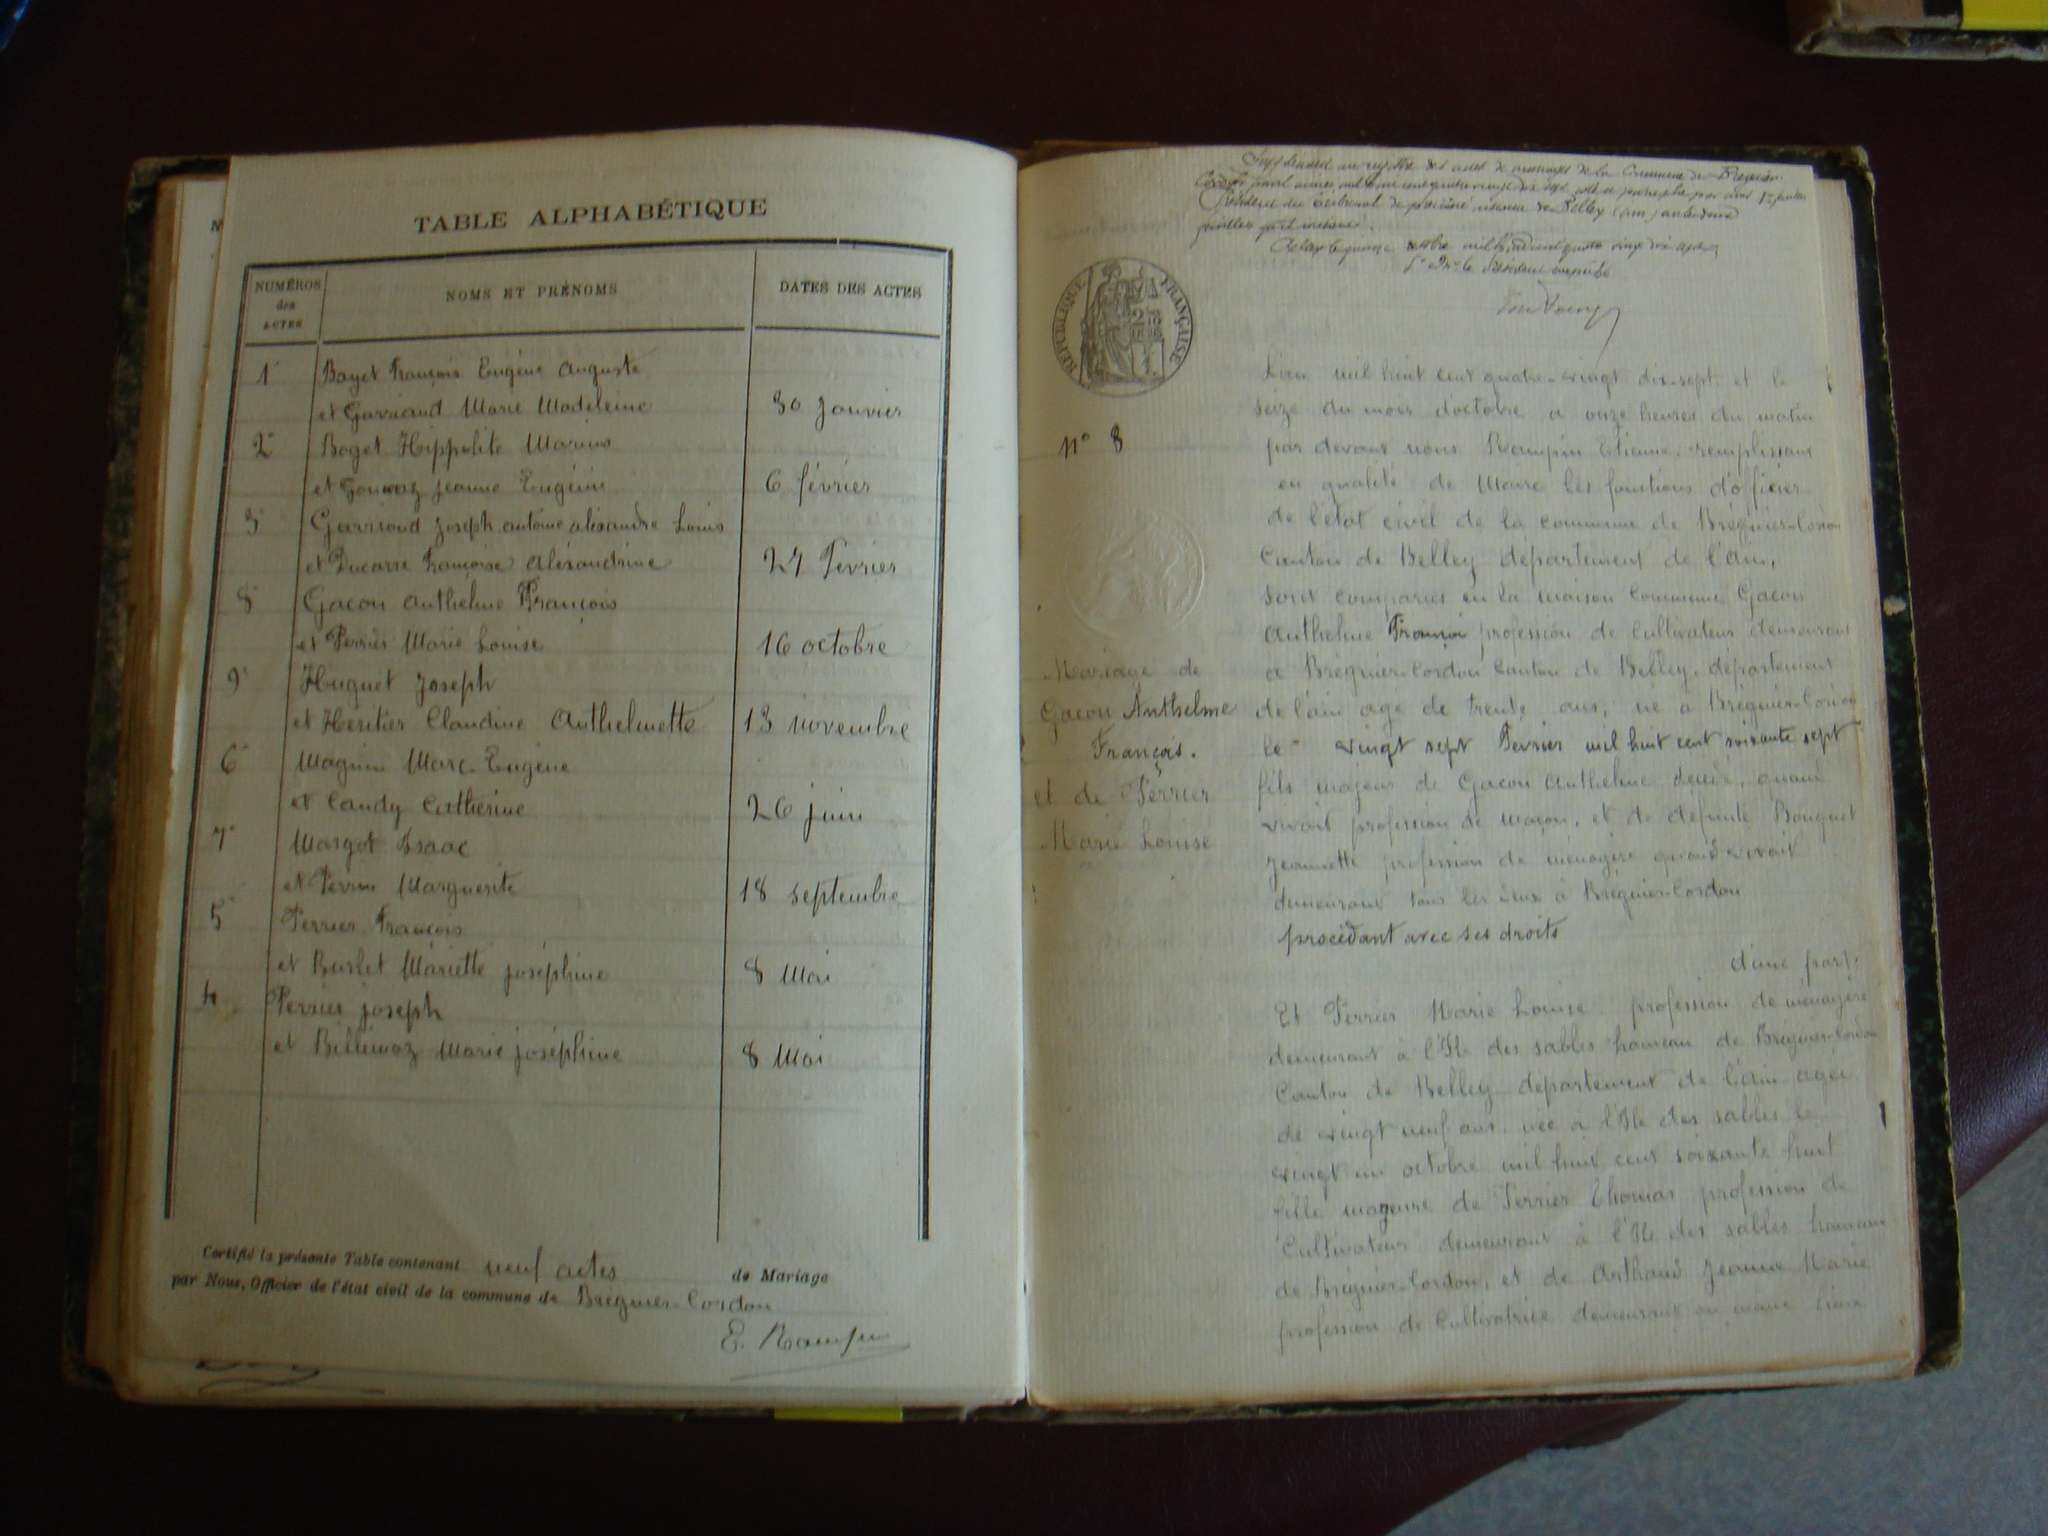 TABLE ALPHABÉTIQUE
NUMÉROS des ACTES
NOMS ET PRÉNOMS
DATES DES ACTES
1 Bayet François Eugène Auguste
et Garriaud Marie Madeleine 30 Janvier
2 Boget Hippolite Marius
et Jeanne Eugénie 6 février
3 Garriaud Joseph antoine alexandre Louis
et Ducarre Françoise Alexandrine 27 Février
8 Gacon Anthelme François
et Perrier Marie Louise 16 octobre
9 Huguet Joseph
et Heritier Claudine Anthelmette 13 novembre
6 Magnin Marc-Eugène
et Candy Catherine 26 juin
7 Margot Isaac
et Perrin Marguerite 18 septembre
5 Perrier François
et Burlet Mariette joséphine 8 Mai
4 Perrier joseph
et Billemaz Marie joséphine 8 Mai
Certifié la présente Table contenant neuf actes de Mariage
par Nous, Officier de l'état civil de la commune de Brégnier-Cordon
E. Rampin
RÉPUBLIQUE FRANÇAISE
N° 8
Mariage de
Gacon Anthelme
François.
et de Perrier
Marie Louise
L'an mil huit cent quatre-vingt dix-sept et le
seize du mois d'octobre a onze heures du matin
par devant nous Rampin Etienne, remplissant
en qualité de Maire les fonctions d'officier
de l'état civil de la commune de Brégnier-Cordon
Canton de Belley département de l'ain,
sont comparus en la maison Commune Gacon
Anthelme François profession de Cultivateur demeurant
a Brégnier-Cordon Canton de Belley, département
de l'ain agé de trente ans, né a Brégnier-Cordon
le vingt sept Fevrier mil huit cent soixante sept
fils majeur de Gacon Anthelme décédé, quand
vivait profession de maçon, et de défunte Bouquet
Jeannette profession de ménagère quand vivait
demeurant tous les deux à Brégnier-Cordon
procédant avec ses droits
d'une part.
Et Perrier Marie Louise profession de ménagère
demeurant à l'Ile des sables hameau de Brégnier-Cordon
Canton de Belley département de l'ain agée
de vingt neuf ans, née a l'Ile des sables le
vingt un octobre mil huit cent soixante huit
fille mageure de Perrier Thomas profession de
Cultivateur demeurant à l'Ile des sables hameau
de Brégnier-Cordon, et de Arthaud Jeanne Marie
profession de Cultivatrice demeurant au même lieux